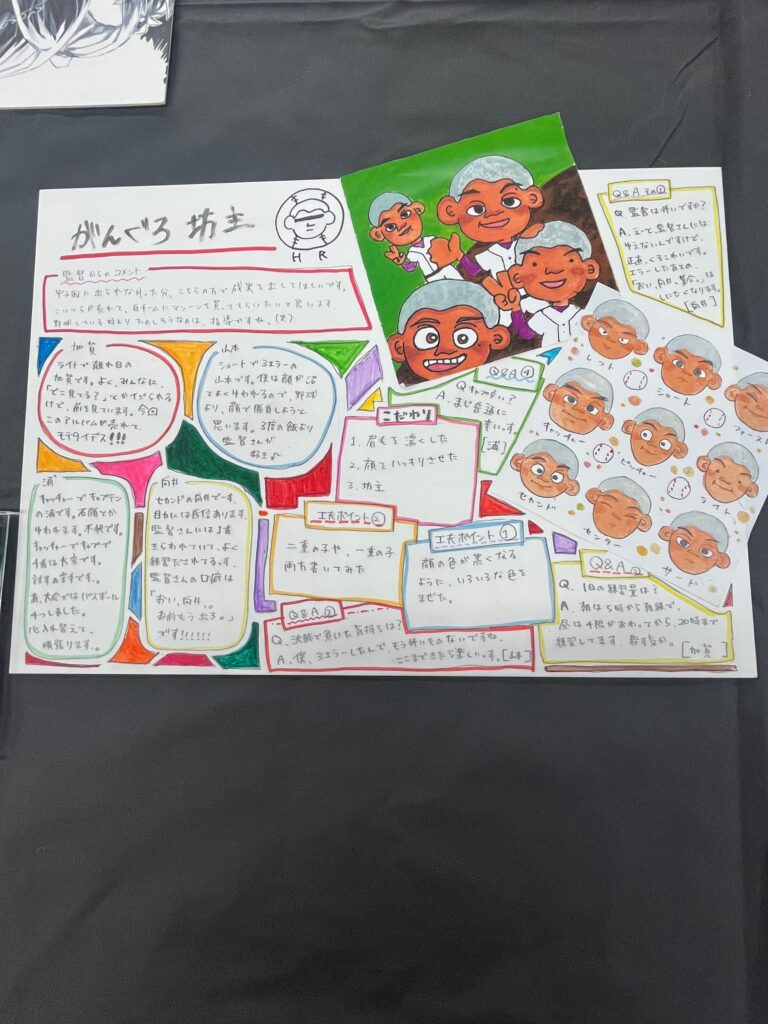 がんぐろ 坊主
H R
監督からのコメント
甲子園に出られなかった分、こちらの方で成果を出してほしいです。
こいつらが売れて、自チームにマシーンを買ってもらいたいと思います。
野球している時より たのしそうなのは、指導ですね。(笑)
加賀
ライトで離れ目の
加賀です。よく、みんなに、
「どこ見てる?」とかイジられる
けど、前を見ています。今回
このアルバムが売れて、
モテタイデス!!!
山本
ショートで3エラーの
山本です。僕は顔が濃
とよく言われるので、野球
より、顔で勝負しようと
思います。3度の飯より
監督さんが
好き♪
浦
キャッチャーでキャプテン
の浦です。石頭とか
言われます。不快です。
キャッチャーでキャプで
4番は大変です。
討すの苦手です。
夏大会ではパスボール
4つしました。
心入れ替えて、
頑張ります。
向井
セカンドの向井です。
目力には自信あります。
監督さんには1番
きらわれていて、よく
練習だされてるっす。
監督さんの口癖は
「おい、向井、
お前もう出ろ。」
です!!!!!!
こだわり
1. 眉毛を濃くした
2. 顔をハッキリさせた
3. 坊主
工夫ポイント②
二重の子や、一重の子
両方書いてみた
工夫ポイント①
顔の色が黒くなる
ように、いろいろな色を
まぜた。
Q&A ②
Q. 決勝で負けた気持ちは?
A. 僕、3エラーしたんで もう怖いものないですね。
ここまできたら楽しいっす。[山本]
Q&A ④
A. まじ普通に
[浦]
Q&A その①
Q. 監督は怖いですか?
A. えーと、監督さんには
言えないんですけど、
正直、くそこわいです。
エラーしたあとの
「おい、向井、集合。」は
[向井]
レフト
ショート
ファースト
キャッチャー
ピッチャー
ライト
セカンド
センター
サード
Q&A
Q. 1日の練習量は?
A. 朝は5時から朝練で、
昼は4限がおわってから、20時まで
練習してます。殺す気か。
[加賀]